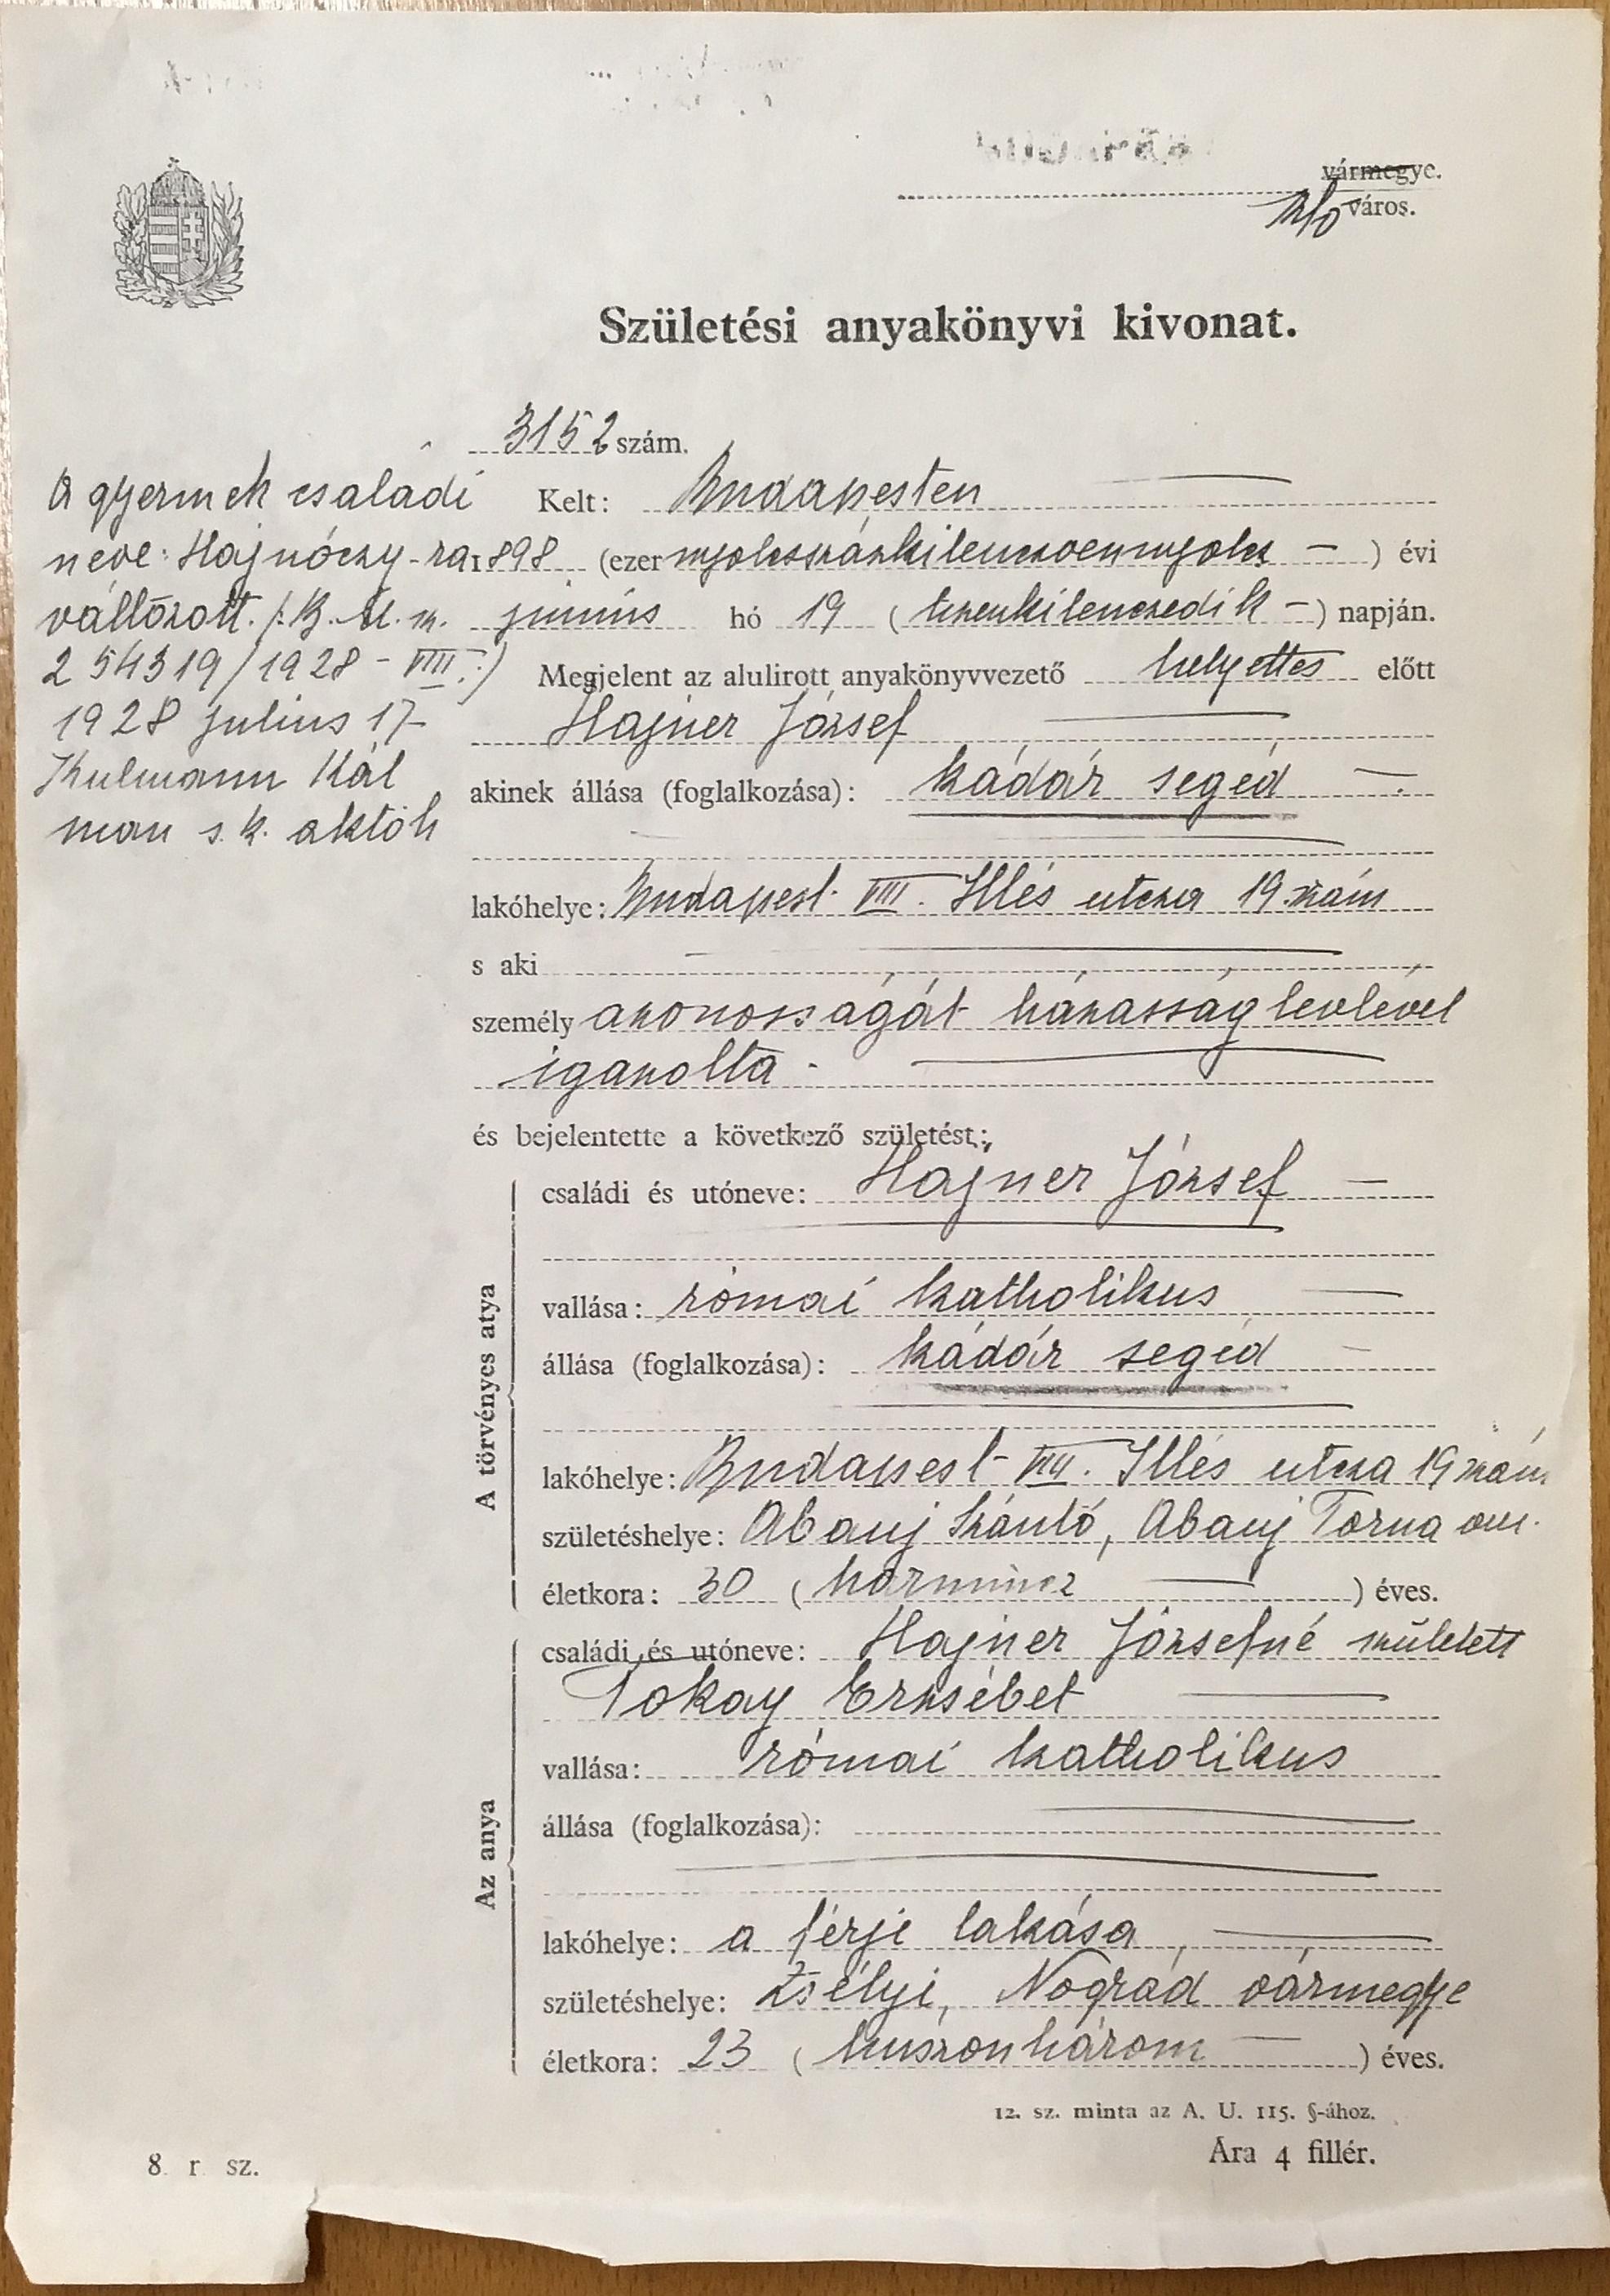 vármegye.
város.
Születési anyakönyvi kivonat.
3152 szám.
A gyermek családi
neve: Hajnóczy-ra
változott. /: B. M. sz.
254319/1928 - VIII :/
1928 julius 17
Kulmann Kál
man s. k. aktöh
Kelt: Budapesten
1898 (ezer nyolcszázkilenczvennyolcz — ) évi
junius hó 19 (tizenkilenczedik —) napján.
Megjelent az alulirott anyakönyvvezető helyettes előtt
Hajner József
akinek állása (foglalkozása): kádár segéd —.
lakóhelye: Budapest VIII. Illés utcza 19. szám
s aki
személy azonosságát házasság levlével
igazolta -
és bejelentette a következő születést:
A törvényes atya
családi és utóneve: Hajner József —
vallása: római katholikus —
állása (foglalkozása): kádár segéd —
lakóhelye: Budapest VIII. Illés utcza 19 szám
születéshelye: Abauj Szántó, Abauj Torna vm.
életkora: 30 (harmincz — ) éves.
Az anya
családi és utóneve: Hajner Józsefné született
Tokay Erzsébet —
vallása: római katholikus
állása (foglalkozása):
lakóhelye: a férje lakása —
születéshelye: Zsélyi, Nográd vármegye
életkora: 23 (huszonhárom — ) éves.
12. sz. minta az A. U. 115. §-ához.
8 r sz.
Ára 4 fillér.